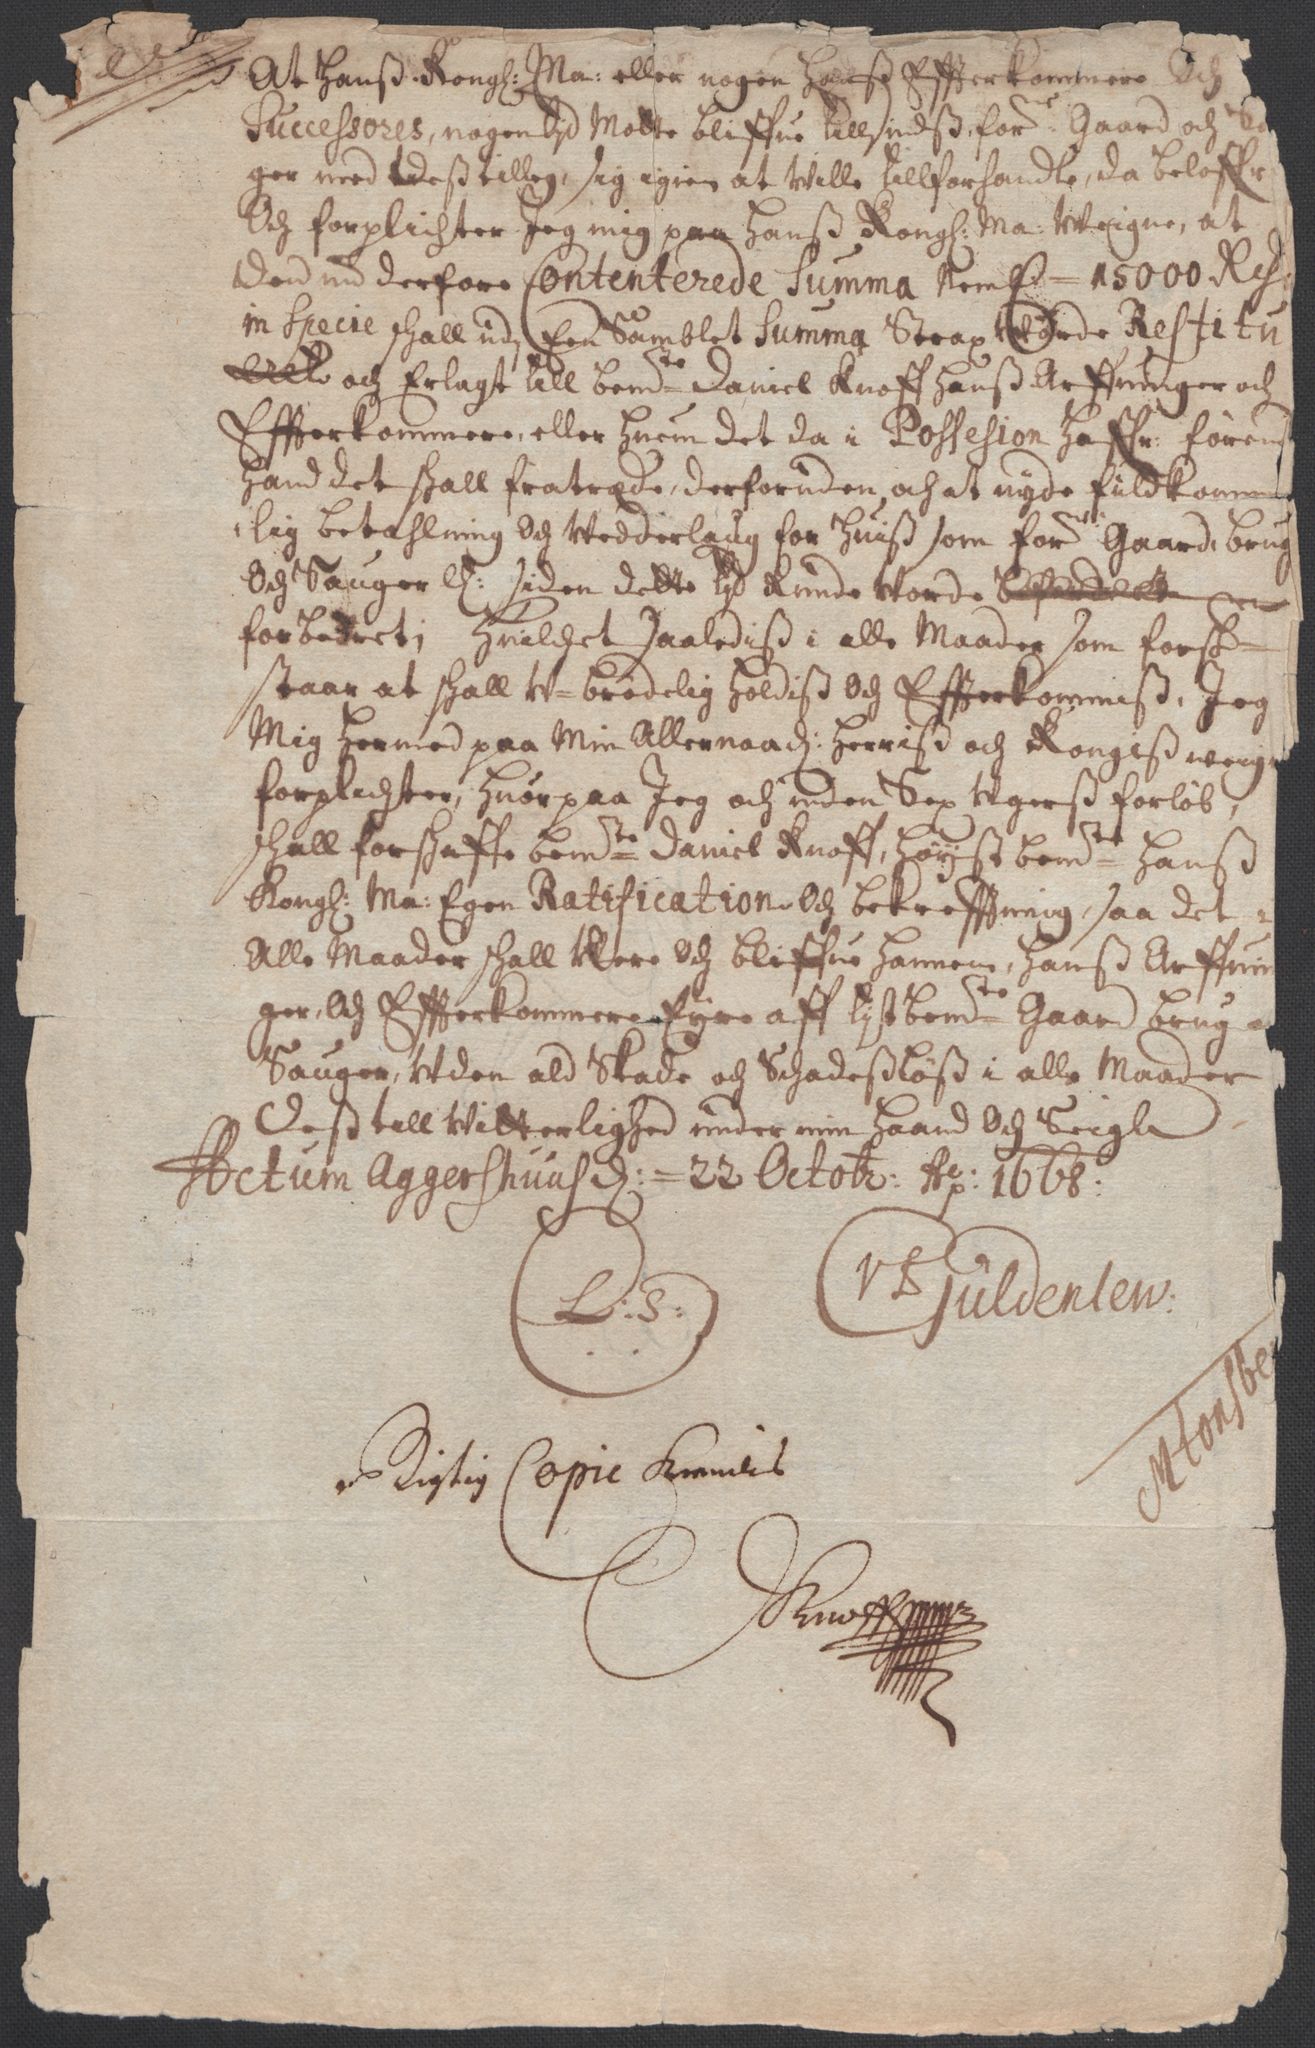 At Hanß Kongl: Ma: eller nogen Hanß Effterkommere Och
Successores, nogen tjd Motte bliffue till sindß, for^ne Gaard och Sa
ger med deß tilleg, sig igien at Wille tillforhandle, da beloffr
Och forplichter Jeg mig paa Hanß Kongl: Ma: Weigne, at
den nu derfore Contenterede Summa Neml = 15000 Rd
in Specie schall udj Een Samblet Summa Strax Worde Restitu
och Erlagt till bem^te Daniel Knoff hanß Arffuinger och
Effterkommere, eller huem det da i Possesion haffr: førend
hand det schall fratræde, derforuden och at nyde fuldkomme
lig betahlning Och Wedderlaug for huiß som for^ne Gaard, brug
Och Sauger siden dette tjd Kunde Worde
forbedret; huilchet saaledeß i alle Maader som forsch
staar at schall W=brødelig holdiß Och Effterkommiß, Jeg
Mig hermed paa Min Allernaad: Herriß och Kongiß weign
forplichter, huorpaa Jeg och inden Sex Wgerß forløb,
schall forschaffe bem^te Daniel Knoff, høyst bem^te Hanß
Kongl: Ma: Egen Ratification Och bekrefftning, saa det i
Alle Maader schall Were Och bliffue hannem, hanß Arffuin
ger, Och Effterkommere Fyre aff bem^te Gaard brug o
Sauger, Wden ald Skade och Schadeßløß i alle Maader
Deß till Witterlighed under min Haand Och Seigle
Actum Aggershuus d: = 22 Octobr: Ao: 1668:
L: S:
V F Guldenlew:
Mtonsbe
Rigtig Copie
Knoff